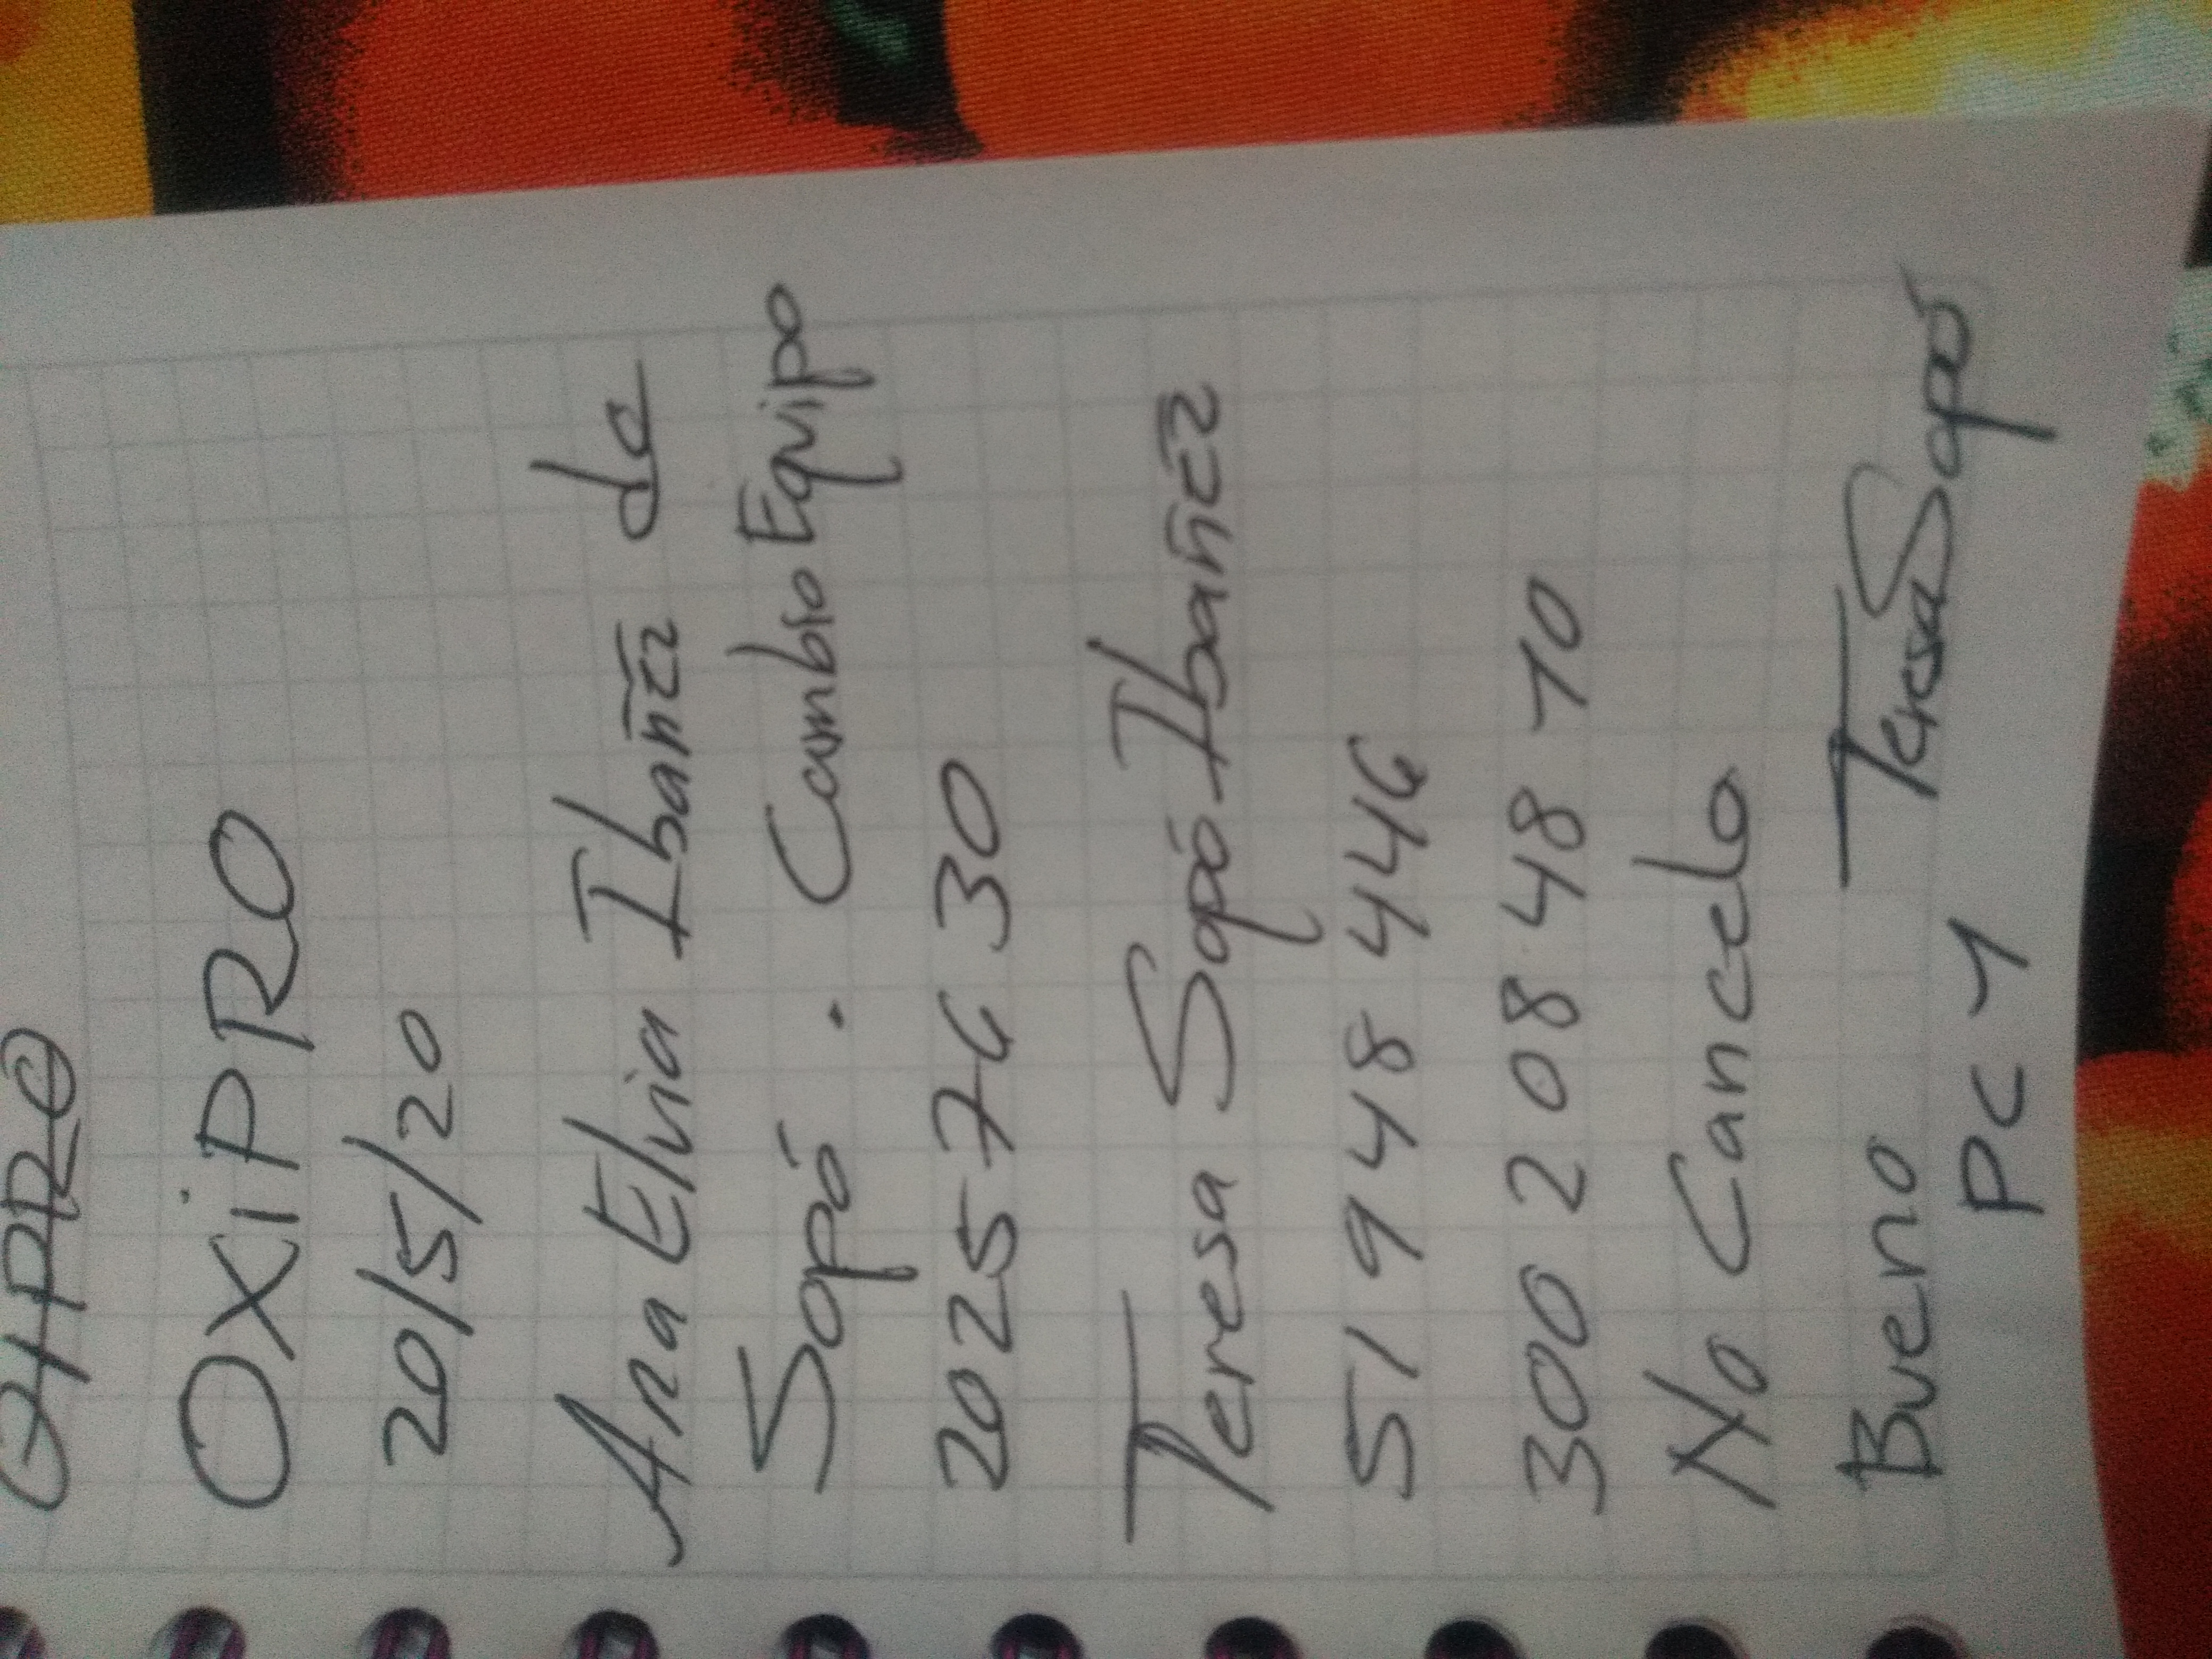 OXiPRO
20/5/20
Ana Elvia Ibañez de
Sopó . Cambio Equipo
20257630
Teresa Sopó Ibañez
51948446
300 208 48 10
No Cancelo
Bueno Teresa Sopó
PC 1